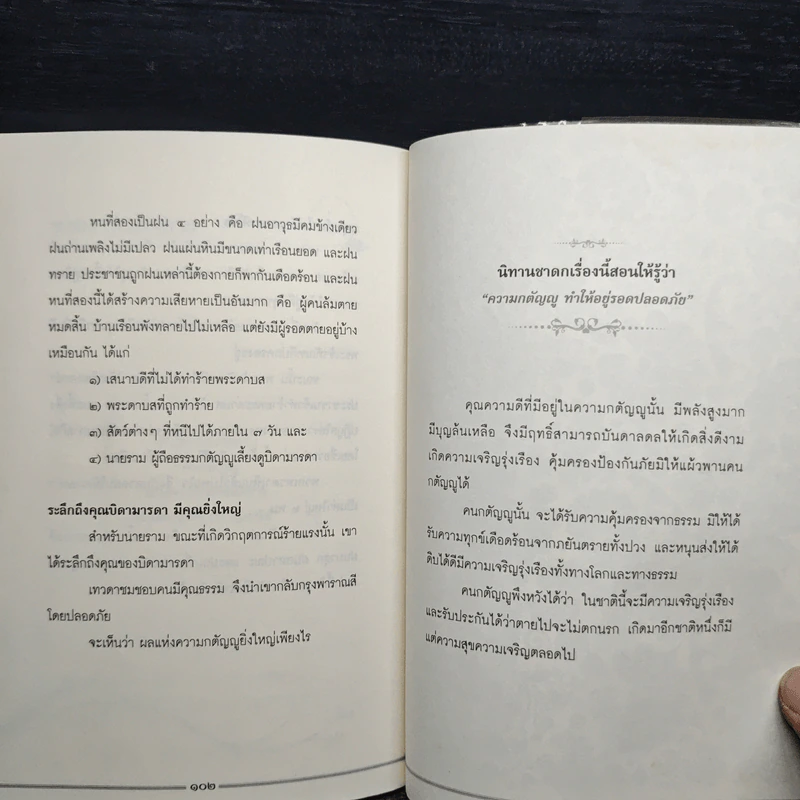 หนที่สองเป็นฝน ๔ อย่าง คือ ฝนอาวุธมีคมข้างเดียว
ฝนถ่านเพลิงไม่มีเปลว ฝนแผ่นหินมีขนาดเท่าเรือนยอด และฝน
ทราย ประชาชนถูกฝนเหล่านี้ต้องกายก็พากันเดือดร้อน และฝน
หนที่สองนี้ได้สร้างความเสียหายเป็นอันมาก คือ ผู้คนล้มตาย
หมดสิ้น บ้านเรือนพังทลายไปไม่เหลือ แต่ยังมีผู้รอดตายอยู่บ้าง
เหมือนกัน ได้แก่
๑) เสนาบดีที่ไม่ได้ทำร้ายพระดาบส
๒) พระดาบสที่ถูกทำร้าย
๓) สัตว์ต่างๆ ที่หนีไปได้ภายใน ๗ วัน และ
๔) นายราม ผู้ถือธรรมกตัญญูเลี้ยงดูบิดามารดา
ระลึกถึงคุณบิดามารดา มีคุณยิ่งใหญ่
สำหรับนายราม ขณะที่เกิดวิกฤตการณ์ร้ายแรงนั้น เขา
ได้ระลึกถึงคุณของบิดามารดา
เทวดาชมชอบคนมีคุณธรรม จึงนำเขากลับกรุงพาราณสี
โดยปลอดภัย
จะเห็นว่า ผลแห่งความกตัญญูยิ่งใหญ่เพียงไร
๑๐๒
นิทานชาดกเรื่องนี้สอนให้รู้ว่า
“ความกตัญญู ทำให้อยู่รอดปลอดภัย”
คุณความดีที่มีอยู่ในความกตัญญูนั้น มีพลังสูงมาก
มีบุญล้นเหลือ จึงมีฤทธิ์สามารถบันดาลดลให้เกิดสิ่งดีงาม
เกิดความเจริญรุ่งเรือง คุ้มครองป้องกันภัยมิให้แผ้วพานคน
กตัญญูได้
คนกตัญญูนั้น จะได้รับความคุ้มครองจากธรรม มิให้ได้
รับความทุกข์เดือดร้อนจากภยันตรายทั้งปวง และหนุนส่งให้ได้
ดิบได้ดีมีความเจริญรุ่งเรืองทั้งทางโลกและทางธรรม
คนกตัญญูพึงหวังได้ว่า ในชาตินี้จะมีความเจริญรุ่งเรือง
และรับประกันได้ว่าตายไปจะไม่ตกนรก เกิดมาอีกชาติหนึ่งก็มี
แต่ความสุขความเจริญตลอดไป